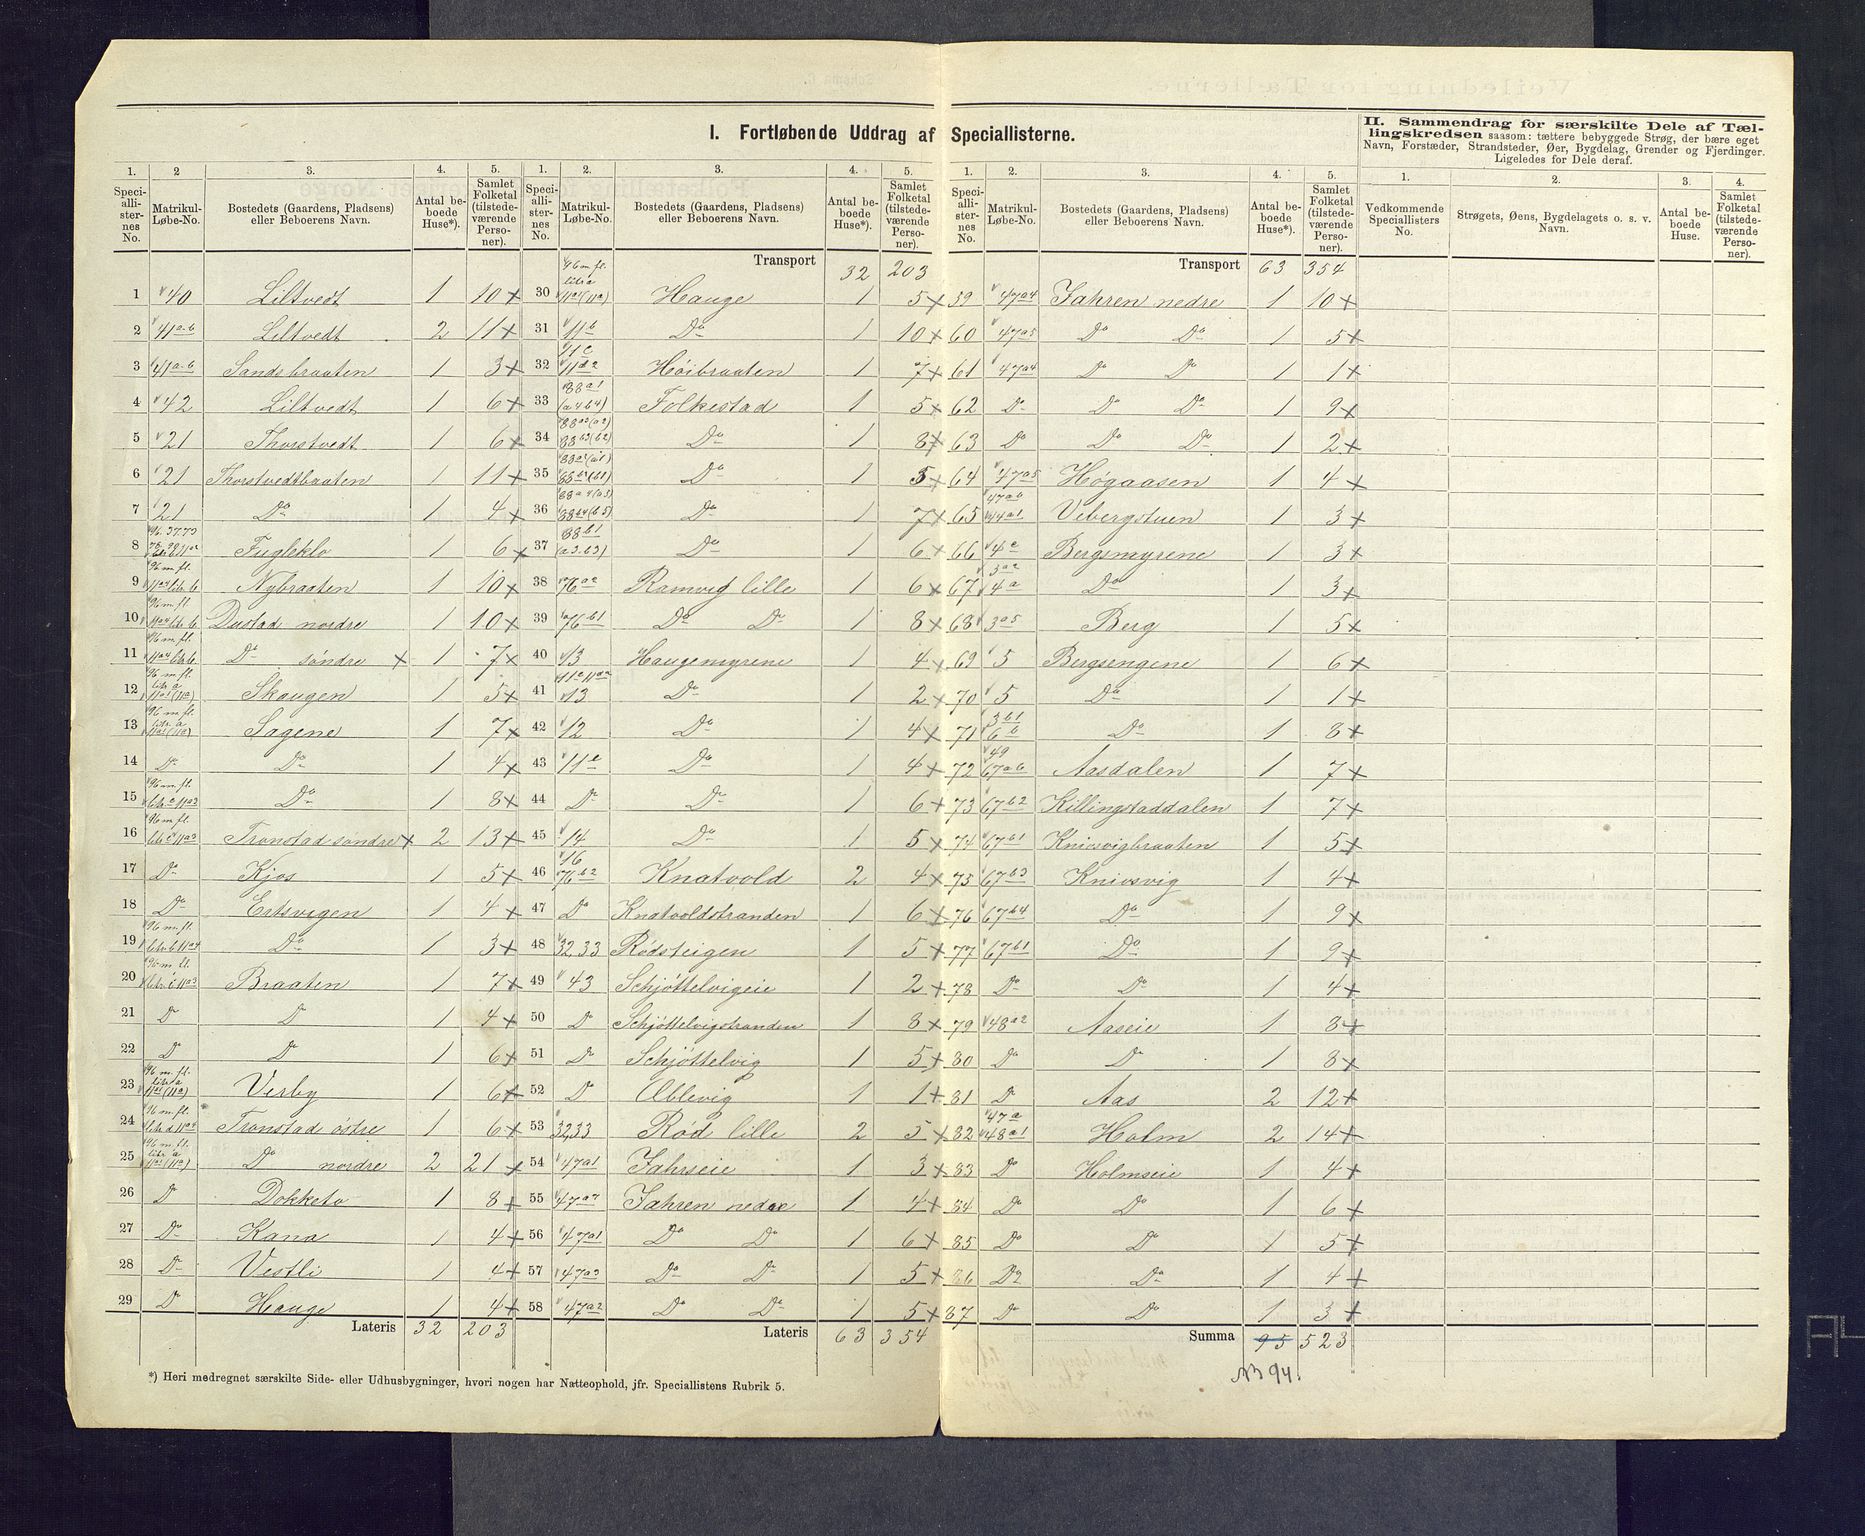 I. Fortløbende Uddrag af Speciallisterne.
II. Sammendrag for særskilte Dele af Tællingskredsen saasom: tættere bebyggede Strøg, der bære eget
Navn, Forstæder, Strandsteder, Øer, Bygdelag, Grender og Fjerdinger.
Ligeledes for Dele deraf.
1. 2 3. 4. 5.
Speciallisternes No. Matrikul-Løbe-No. Bostedets (Gaardens, Pladsens) eller Beboerens Navn. Antal beboede Huse*). Samlet Folketal (tilstedeværende Personer).
1 40 Liltvedt 1 10
2 41 a-b Liltvedt 2 11
3 41 a-b Sandsbraaten 1 3
4 42 Liltvedt 1 6
5 21 Thorstvedt 1 6
6 21 Thorstvedtbraaten 1 11
7 21 Do 1 4
8 Fugleklo 1 6
9 96 m. fl. Nybraaten 1 10
10 96 m fl Dustad nordre 1 10
11 96 m. fl. Do søndre × 1 7
12 96 m. fl. litr a 11a1 (11a) Skaugen 1 5
13 96 m. fl. litr. a 11a1 (11a) Sagene 1 7
14 Do Do 1 4
15 96 m. fl. Do 1 8
16 96 m. fl. Tronstad søndre × 2 13
17 Do Kjos 1 5
18 Do Ertsvigen 1 4
19 96 m. fl. Do 1 3
20 96 m. fl. Braaten 1 7
21 Do Do 1 4
22 Do Do 1 6
23 96 m. fl. litr a 11a1 (11a) Verby 1 6
24 96 m. fl. Tronstad østre 1 6
25 96 m. fl. litr a 11a1 (11a) Do nordre 2 21
26 Do Dokketo 1 8
27 Do Kana 1 4
28 Do Vestli 1 4
29 Do Hauge 1 4
Lateris 32 203
1. 2. 3. 4. 5.
Speciallisternes No. Matrikul-Løbe-No. Bostedets (Gaardens, Pladsens) eller Beboerens Navn. Antal beboede Huse*). Samlet Folketal (tilstedeværende Personer).
Transport 32 203
30 96 m. fl. litr a 11a1 (11a) Hauge 1 5
31 11 b Do 1 10
32 11 c 11 d2 Høibraaten 1 7
33 88 a1 (a4 b4) Folkestad 1 5
34 88 a3 (a2) 88 b3 (b2) Do 1 8
35 Do 1 5
36 88 a4 (a5) 88 b4 (b5) Do 1 7
37 88 b1 (a3. b3) Do 1 6
38 76 a2 Ramvig lille 1 6
39 76 b1 Do Do 1 8
40 13 Haugemyrene 1 4
41 13 Do 1 2
42 12 Do 1 4
43 11 e Do 1 4
44 Do Do 1 6
45 14 Do 1 5
46 16 76 b2 Knatvold 2 4
47 Do Knatvoldstranden 1 6
48 32,33 Rødsteigen 1 5
49 43 Schjøttelvigeie 1 2
50 Do Schjøttelvigstranden 1 8
51 Do Schjøttelvig 1 5
52 Do Æblevig 1 1
53 32,33 Rød lille 2 5
54 47 a1 Jahreie 1 3
55 Jahren nedre 1 4
56 47 a1 Do Do 1 6
57 47 a3 Do Do 1 5
58 47 a2 Do Do 1 5
Lateris 63 354
1. 2. 3. 4. 5.
Speciallisternes No. Matrikul-Løbe-No. Bostedets (Gaardens, Pladsens) eller Beboerens Navn. Antal beboede Huse*). Samlet Folketal (tilstedeværende Personer).
Transport 63 354
59 47 a4 Jahren nedre 1 10
60 47 a5 Do Do 1 5
61 47 a4 Do Do 1 1
62 Do Do Do 1 9
63 Do Do Do 1 2
64 47 a5 Høgaasen 1 4
65 47 a6 Vebergstuen 1 3
66 4 c Bergsmyrene 1 3
67 3 a2 4 a Do 1 3
68 3 a5 Berg 1 5
69 5 Bergsengene 1 6
70 5 Do 1 1
71 3 b1 6 b Do 1 8
72 49 67 a b Aasdalen 1 7
73 67 b2 Killingstaddalen 1 7
74 67 b1 Knivsvigbraaten 1 5
75 67 b3 Knivsvig 1 4
76 67 b4 Do 1 9
77 67 b1 Do 1 9
78 Do Do 1 4
79 48 a2 Aaseie 1 8
80 Do Do 1 8
81 Do Aas 2 12
82 47 a 48 a1 Holm 2 14
83 Do Holmseie 1 4
84 Do Do 1 6
85 Do Do 1 5
86 Do Do 1 4
87 Do Do 1 3
Summa 95 523
NB 94.
1. 2. 3. 4.
Vedkommende Speciallisters No. Strøgets, Øens, Bygdelagets o. s. v. Navn. Antal beboede Huse. Samlet Folketal (tilstedeværende Personer).
*) Heri medregnet særskilte Side- eller Udhusbygninger, hvori nogen har Natteophold, jfr. Speciallistens Rubrik 5.